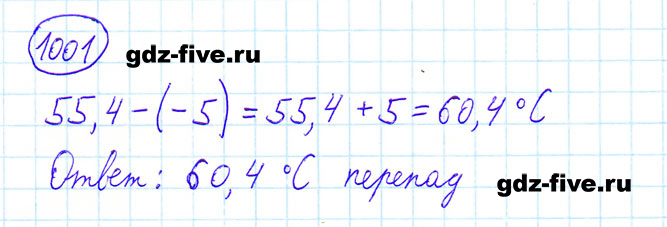 1001 gdz-five.ru
55,4 - (-5) = 55,4 + 5 = 60,4 °C
Ответ: 60,4 °C перепад
gdz-five.ru